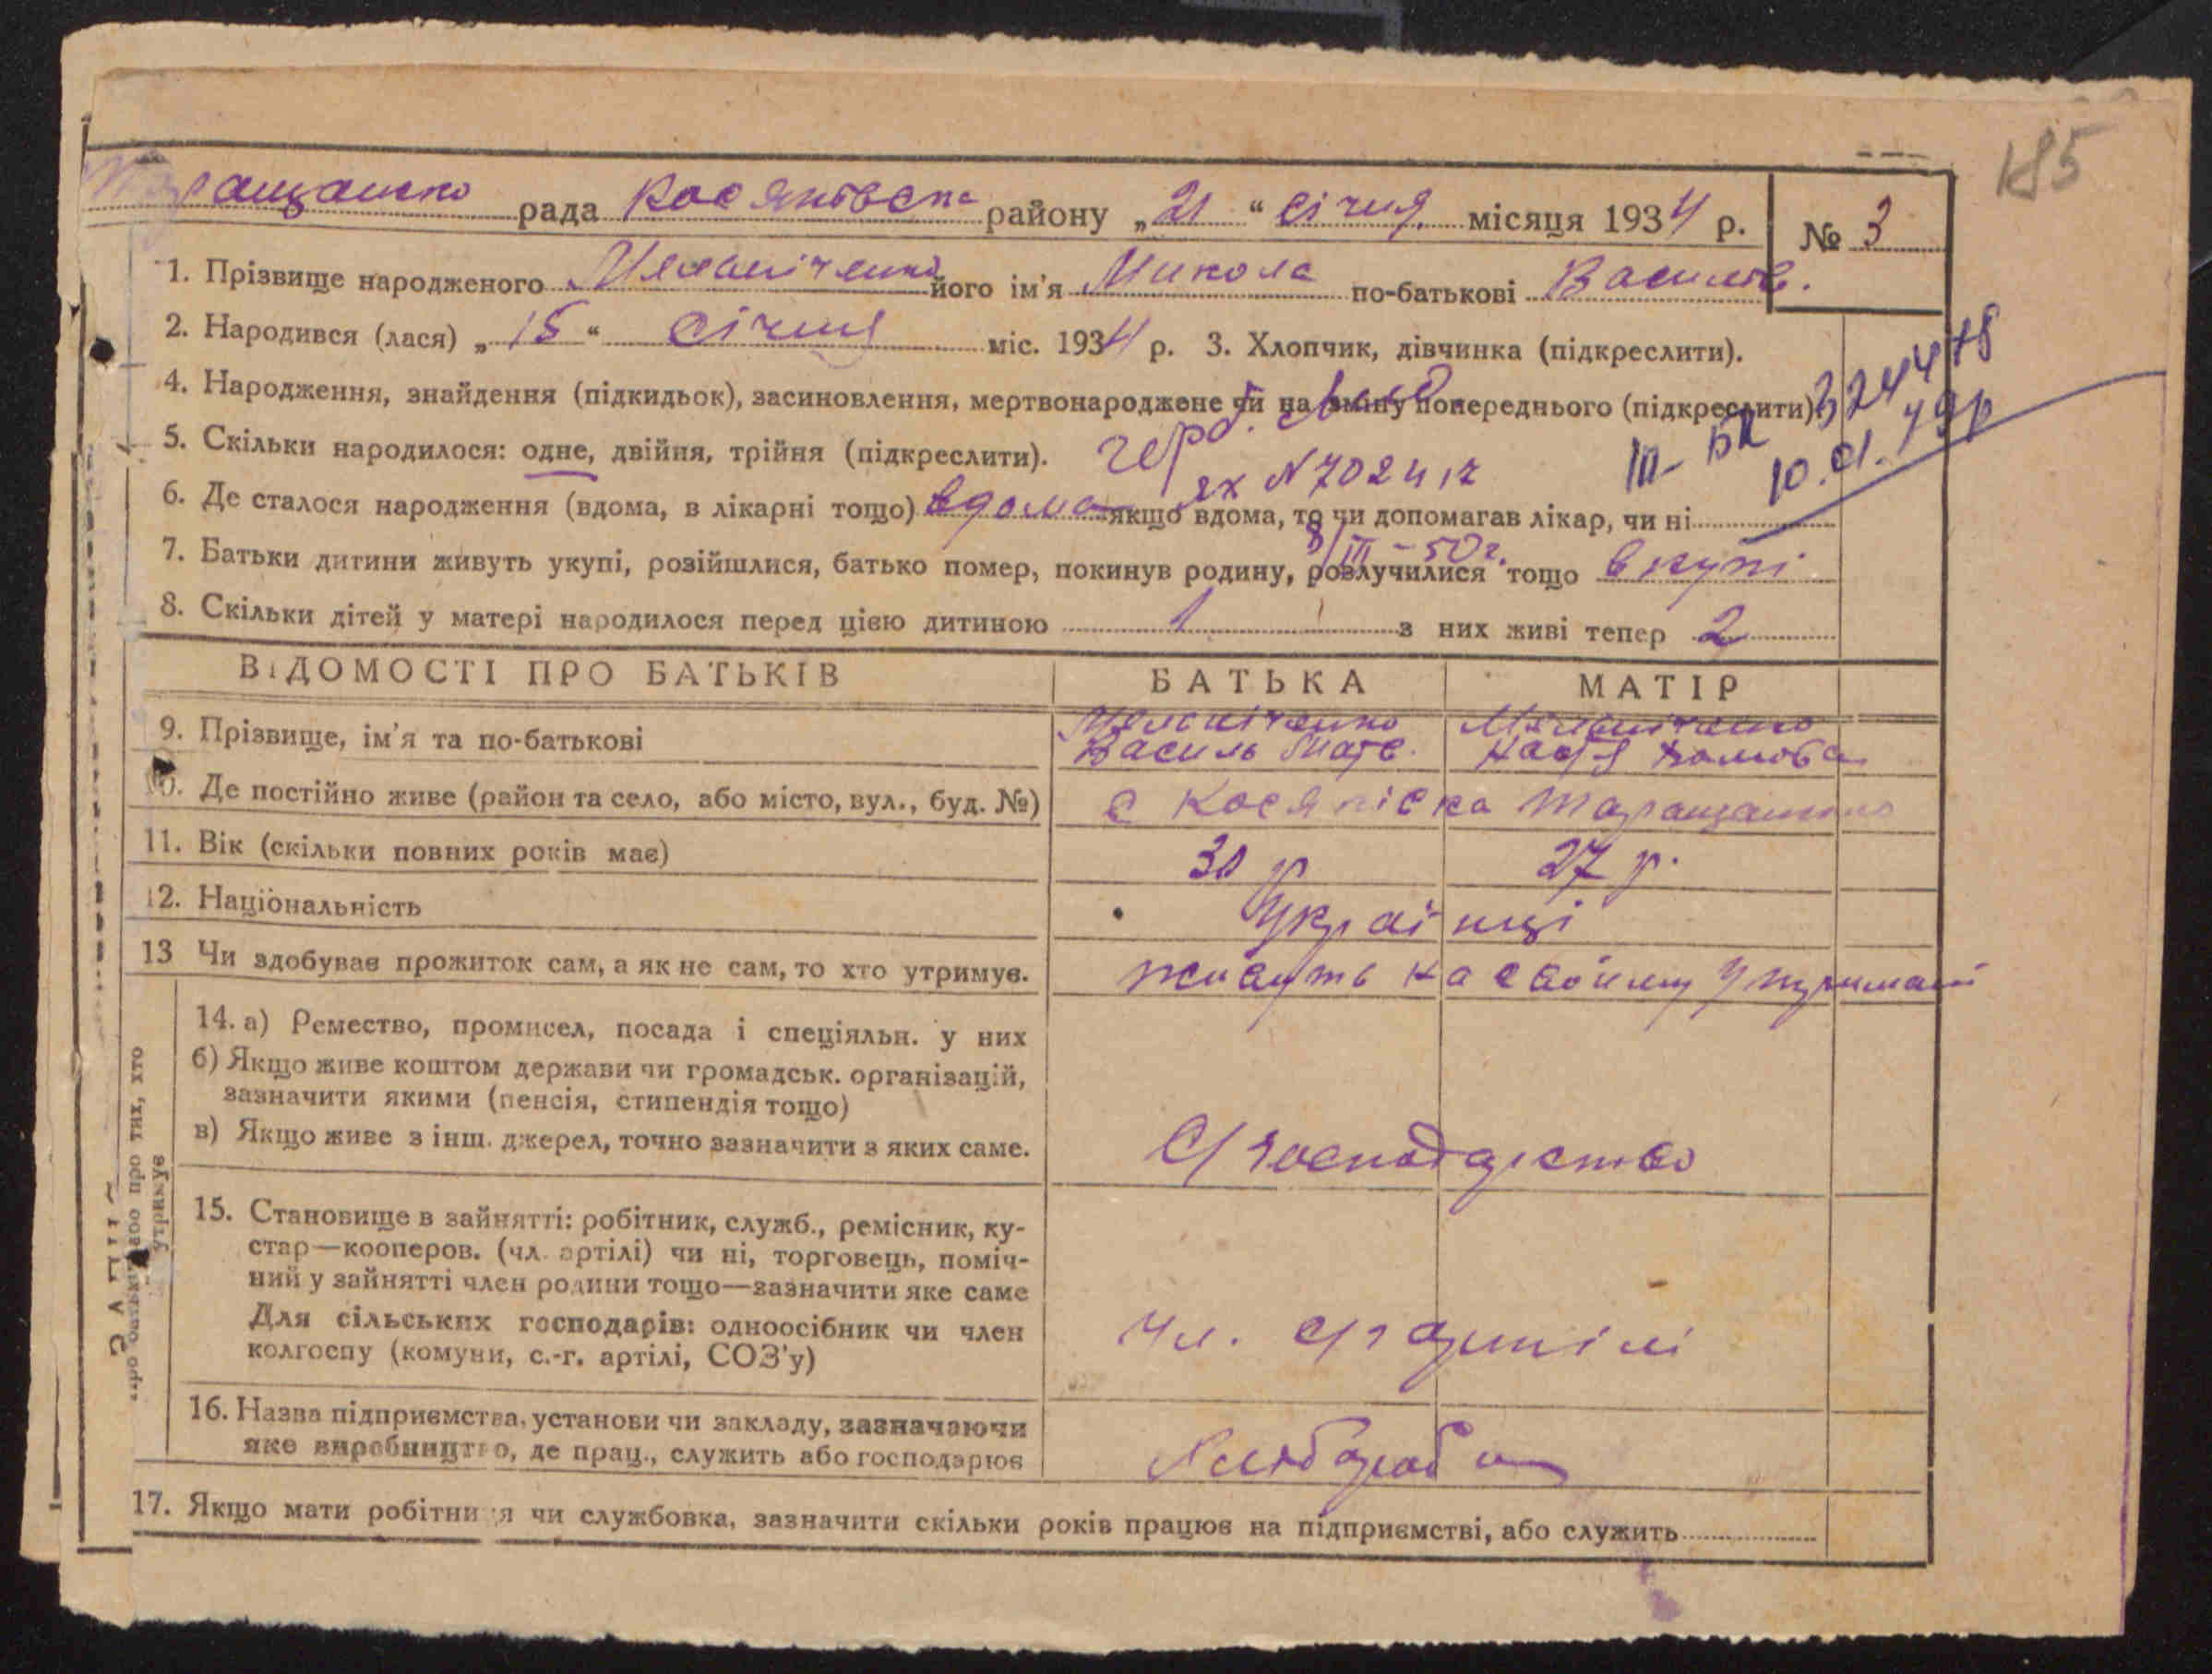 185
ращанско рада Косяківска району „21“ січня місяця 1934 р. № 3
1. Прізвище народженого Меланіченко його ім'я Микола по-батькові Васильв.
2. Народився (лася) „15“ січня міс. 1934 р. 3. Хлопчик, дівчинка (підкреслити).
4. Народження, знайдення (підкидьок), засиновлення, мертвонароджене чи на зміну попереднього (підкреслити)
324478
5. Скільки народилося: одне, двійня, трійня (підкреслити).
герб. свид.
III-БК
10.01.49р
6. Де сталося народження (вдома, в лікарні тощо) вдома якщо вдома, то чи допомагав лікар, чи ні
N 702412
8/III-50г.
7. Батьки дитини живуть укупі, розійшлися, батько помер, покинув родину, розлучилися тощо вкупі
8. Скільки дітей у матері народилося перед цією дитиною 1 з них живі тепер 2
ВІДОМОСТІ ПРО БАТЬКІВ БАТЬКА МАТІР
9. Прізвище, ім'я та по-батькові Меланіченко Василь Матв. Меланіченко Настя
10. Де постійно живе (район та село, або місто, вул., буд. №) с Косяківка Таращанско
11. Вік (скільки повних років має) 30 р 27 р.
12. Національність Українці
13 Чи здобуває прожиток сам, а як не сам, то хто утримує. живуть на свойому утримані
14. а) Ремество, промисел, посада і спеціяльн. у них
б) Якщо живе коштом держави чи громадськ. організацій,
зазначити якими (пенсія, стипендія тощо)
в) Якщо живе з інш. джерел, точно зазначити з яких саме.
С/господарство
15. Становище в зайнятті: робітник, служб., ремісник, ку-
стар—кооперов. (чл. артілі) чи ні, торговець, поміч-
ний у зайнятті член родини тощо—зазначити яке саме
Для сільських господарів: одноосібник чи член
колгоспу (комуни, с.-г. артілі, СОЗ'у)
чл. с/г артілі
16. Назва підприємства, установи чи закладу, зазначаючи
яке виробництво, де прац., служить або господарює
Хлібороби
17. Якщо мати робітниця чи службовка, зазначити скільки років працює на підприємстві, або служить
або про тих, хто
утримує